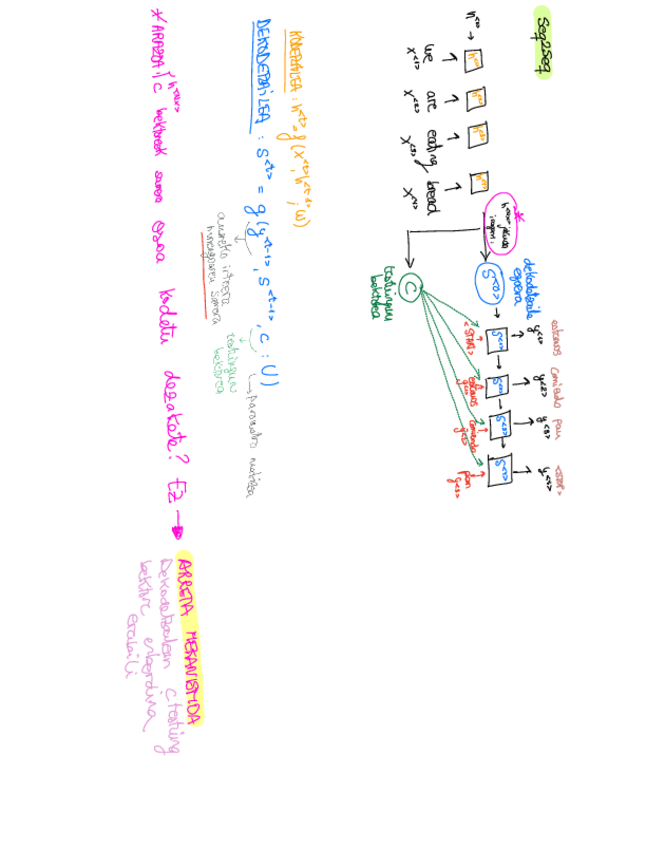 Seq2Seq
h<0> → h<1> h<2> h<3> h<4>
we are eating bread
x<1> x<2> x<3> x<4>
dekodetzaile
egoera
S<0>
C
testuinguru
bektorea
estamos comiendo pan <STOP>
y<1> y<2> y<3> y<4>
S<1> S<2> S<3> S<4>
<START> estamos comiendo pan
y<1> y<2> y<3>
KODETZAILEA: h<t> = f(x<t>, h<t-1>; W)
DEKODETZAILEA: S<t> = g(y<t-1>, S<t-1>, C; U)
aurreko irteera
hurrengoaren sarrera
testuinguru
bektorea
parametro matrizea
* ARAZOA: C bektoreak sarrera osoa kodetu dezakete? Ez →
ARRETA MEKANISMOA
Dekodetzalean C testuing
bektore ezberdina
erabili